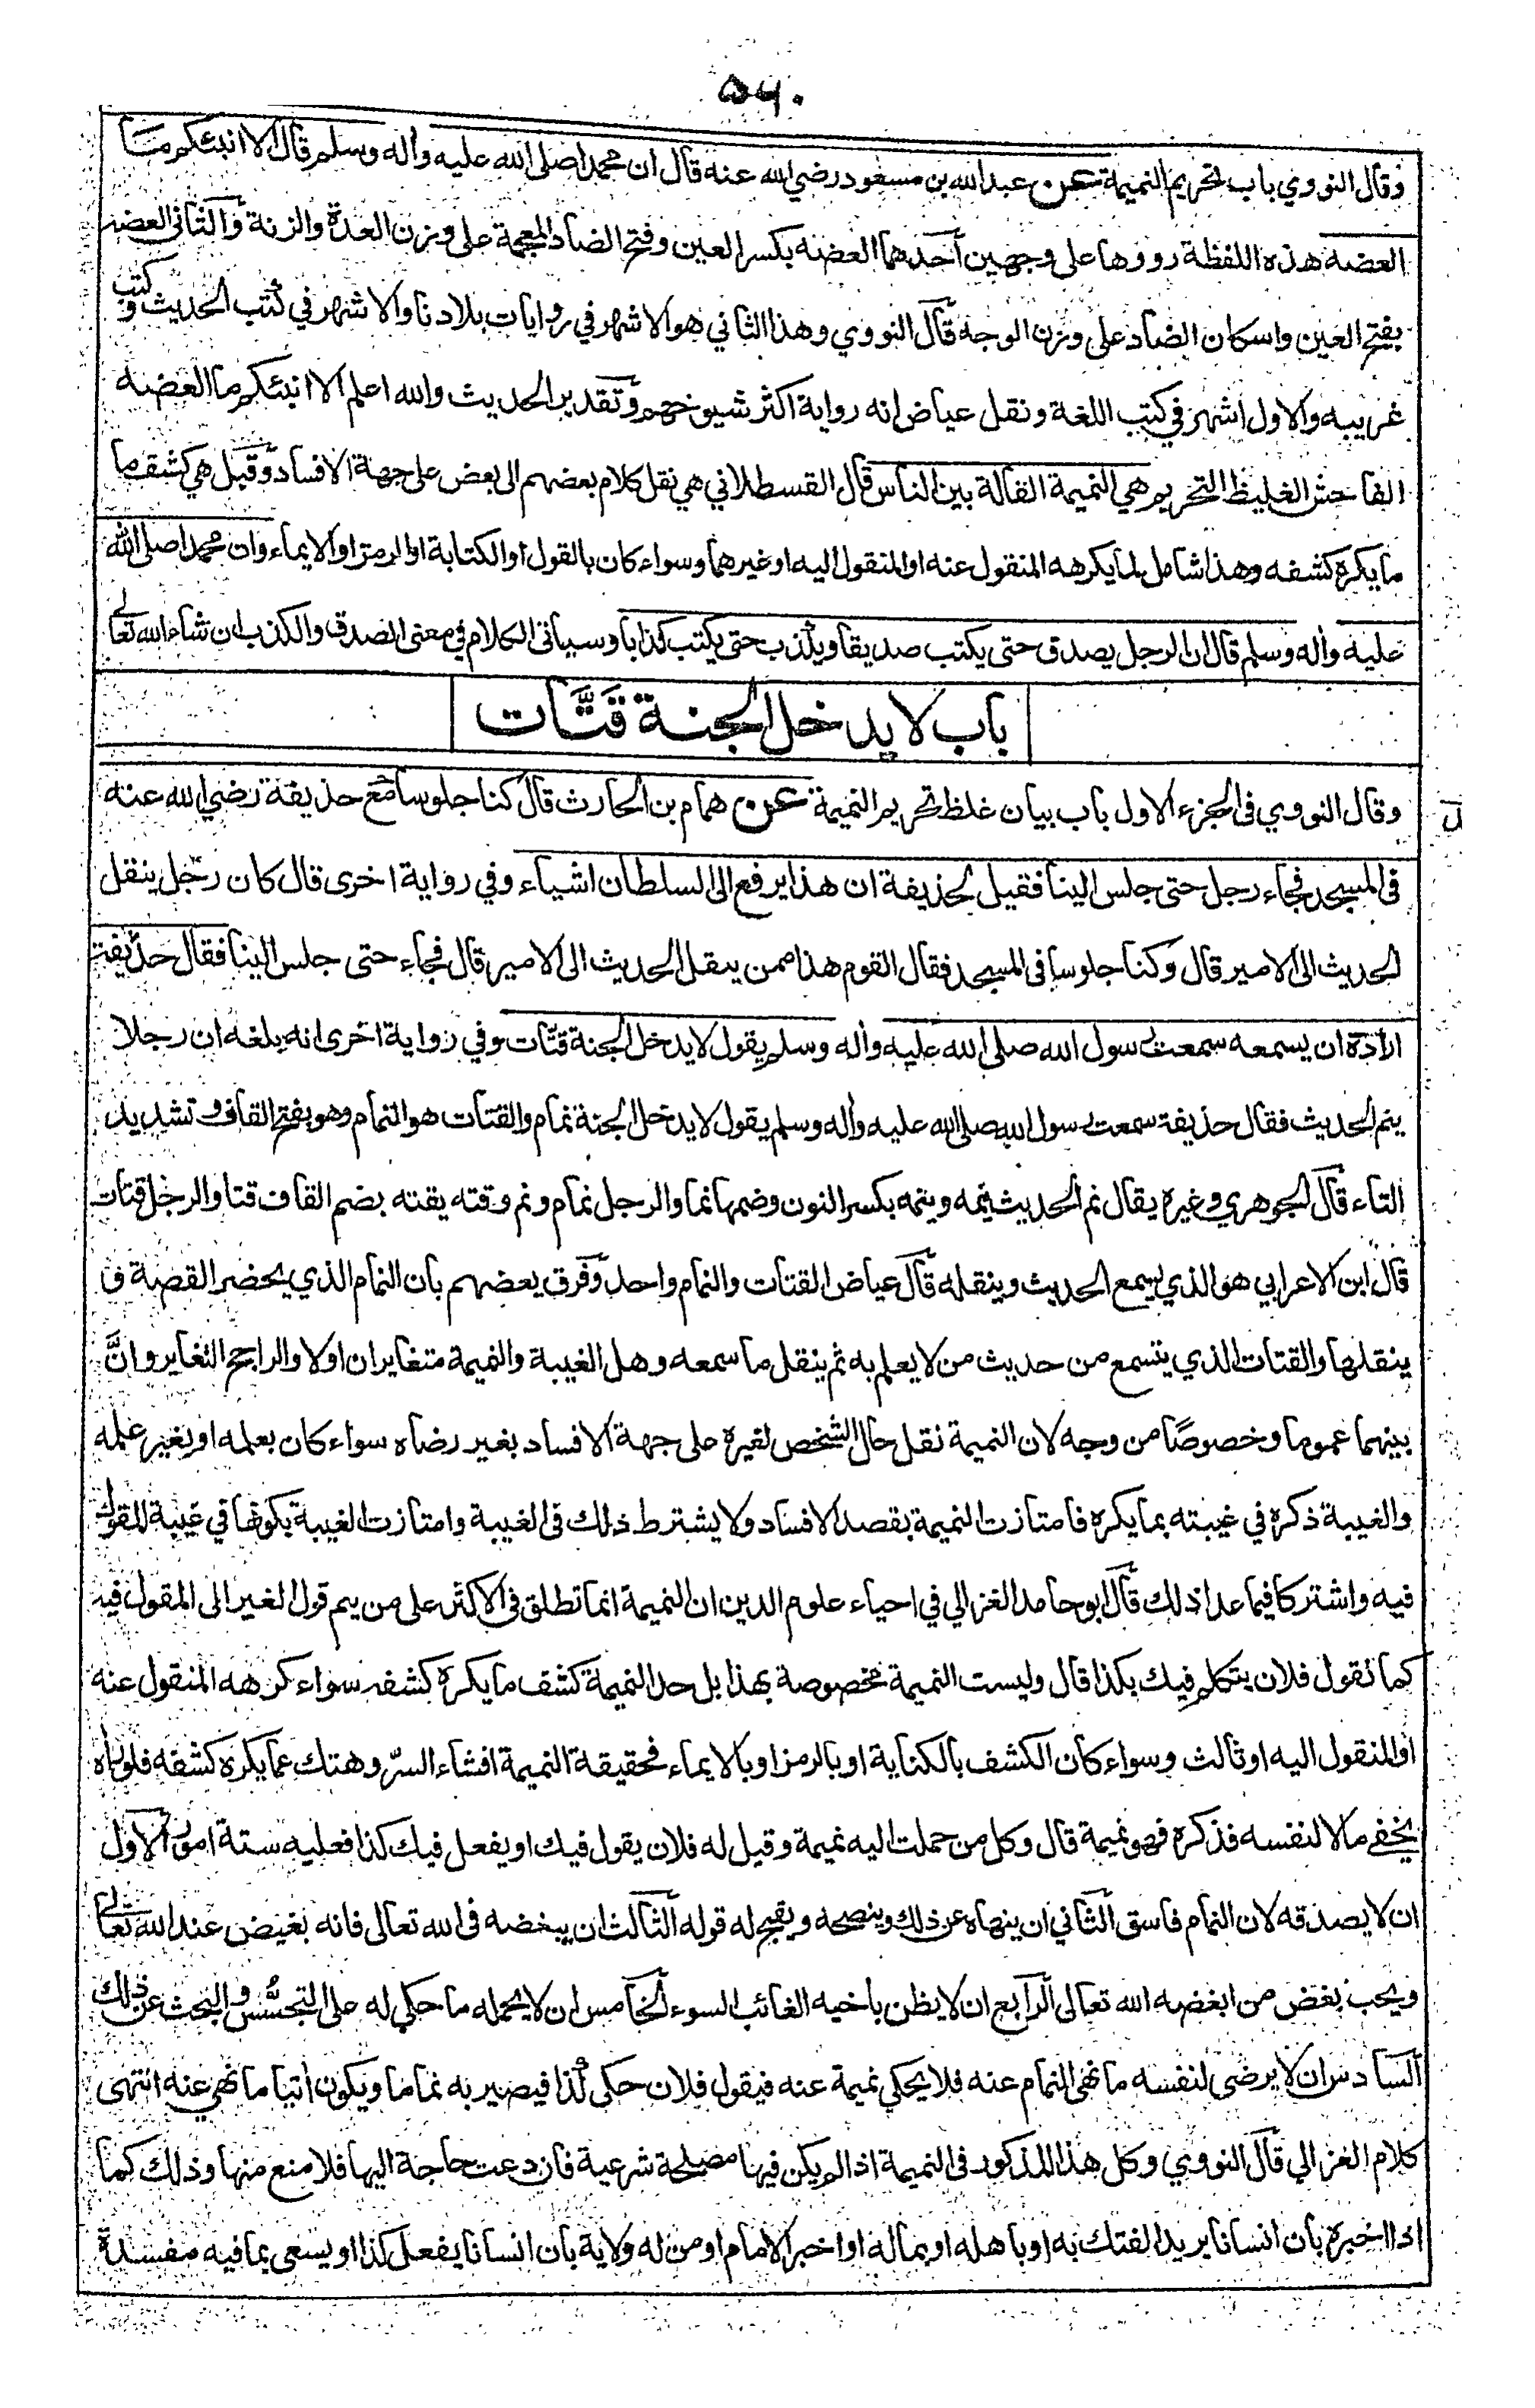 ٥٦٠
وقال النووي باب تحريم النميمة عن عبد الله بن مسعود رضي الله عنه قال ان محمدا صلى الله عليه واله وسلم قال الا انبئكم ما
العضه هذه اللفظة رووها على وجهين أحدهما العضه بكسر العين وفتح الضاد المعجمة على وزن العدة والزنة والثاني العضه
بفتح العين واسكان الضاد على وزن الوجه قال النووي وهذا الثاني هو الاشهر في روايات بلادنا والاشهر في كتب الحديث وكتب
غريبه والاول اشهر في كتب اللغة ونقل عياض انه رواية اكثر شيوخهم وتقدير الحديث والله اعلم الا انبئكم ما العضه
الفاحش الغليظ التحريم هي النميمة القالة بين الناس قال القسطلاني هي نقل كلام بعضهم الى بعض على جهة الافساد وقيل هي كشف ما
ما يكره كشفه وهذا شامل لما يكرهه المنقول عنه او المنقول اليه او غيرهما وسواء كان بالقول او الكتابة او الرمز او الايماء وان محمدا صلى الله
عليه واله وسلم قال ان الرجل يصدق حتى يكتب صديقا ويكذب حتى يكتب كذابا وسياتي الكلام في معنى الصدق والكذب ان شاء الله تعالى
باب لا يدخل الجنة قَتَّات
وقال النووي فى الجزء الاول باب بيان غلظ تحريم النميمة عن همام بن الحارث قال كنا جلوسا مع حذيفة رضي الله عنه
فى المسجد فجاء رجل حتى جلس الينا فقيل لحذيفة ان هذا يرفع الى السلطان اشياء وفي رواية اخرى قال كان رجل ينقل
الحديث الى الامير قال وكنا جلوسا فى المسجد فقال القوم هذا ممن ينقل الحديث الى الامير قال فجاء حتى جلس الينا فقال حذيفة
ارادة ان يسمعه سمعت رسول الله صلى الله عليه واله وسلم يقول لا يدخل الجنة قتات وفي رواية اخرى انه بلغه ان رجلا
ينم الحديث فقال حذيفة سمعت رسول الله صلى الله عليه واله وسلم يقول لا يدخل الجنة نمام والقتات هو النمام وهو بفتح القاف وتشديد
التاء قال الجوهري وغيره يقال نم الحديث ينمه وينمه بكسر النون وضمها نما والرجل نمام ونم وقته يقته بضم القاف قتا والرجل قتات
قال ابن الاعرابي هو الذي يسمع الحديث وينقله قال عياض القتات والنمام واحد وفرق بعضهم بان النمام الذي يحضر القصة و
ينقلها والقتات الذي يتسمع من حديث من لا يعلم به ثم ينقل ما سمعه وهل الغيبة والنميمة متغايران اولا والراجح التغاير وانَّ
بينهما عموما وخصوصًا من وجه لان النميمة نقل حال الشخص لغيره على جهة الافساد بغير رضاه سواء كان بعلمه او بغير علمه
والغيبة ذكره في غيبته بما يكره فامتازت النميمة بقصد الافساد ولا يشترط ذلك فى الغيبة وامتازت الغيبة بكونها في غيبة المقول
فيه واشتركا فيما عدا ذلك قال ابو حامد الغزالي في احياء علوم الدين ان النميمة انما تطلق فى الاكثر على من ينم قول الغير الى المقول فيه
كما تقول فلان يتكلم فيك بكذا قال وليست النميمة مخصوصة بهذا بل حد النميمة كشف ما يكره كشفه سواء كرهه المنقول عنه
او المنقول اليه او ثالث وسواء كان الكشف بالكناية او بالرمز او بالايماء فحقيقة النميمة افشاء السرّ وهتك عما يكره كشفه فلو رأه
يخفے مالا لنفسه فذكره فهو نميمة قال وكل من حملت اليه نميمة وقيل له فلان يقول فيك او يفعل فيك كذا فعليه ستة امور الاول
ان لا يصدقه لان النمام فاسق الثاني ان ينهاه عن ذلك وينصحه ويقبح له قوله الثالث ان يبغضه فى الله تعالى فانه بغيض عند الله تعالى
ويجب بغض من ابغضه الله تعالى الرابع ان لا يظن باخيه الغائب السوء الخامس ان لا يحمله ما حكي له على التجسُّس والبحث عن ذلك
السادس ان لا يرضى لنفسه ما نهى النمام عنه فلا يحكي نميمة عنه فيقول فلان حكى كذا فيصير به نماما ويكون اتيا ما نهي عنه انتهى
كلام الغزالي قال النووي وكل هذا المذكور فى النميمة اذا لم يكن فيها مصلحة شرعية فان دعت حاجة اليها فلا منع منها وذلك كما
اذا اخبره بان انسانا يريد الفتك به او باهله او بماله او اخبر الامام او من له ولاية بان انسانا يفعل كذا او يسعى بما فيه مفسدة